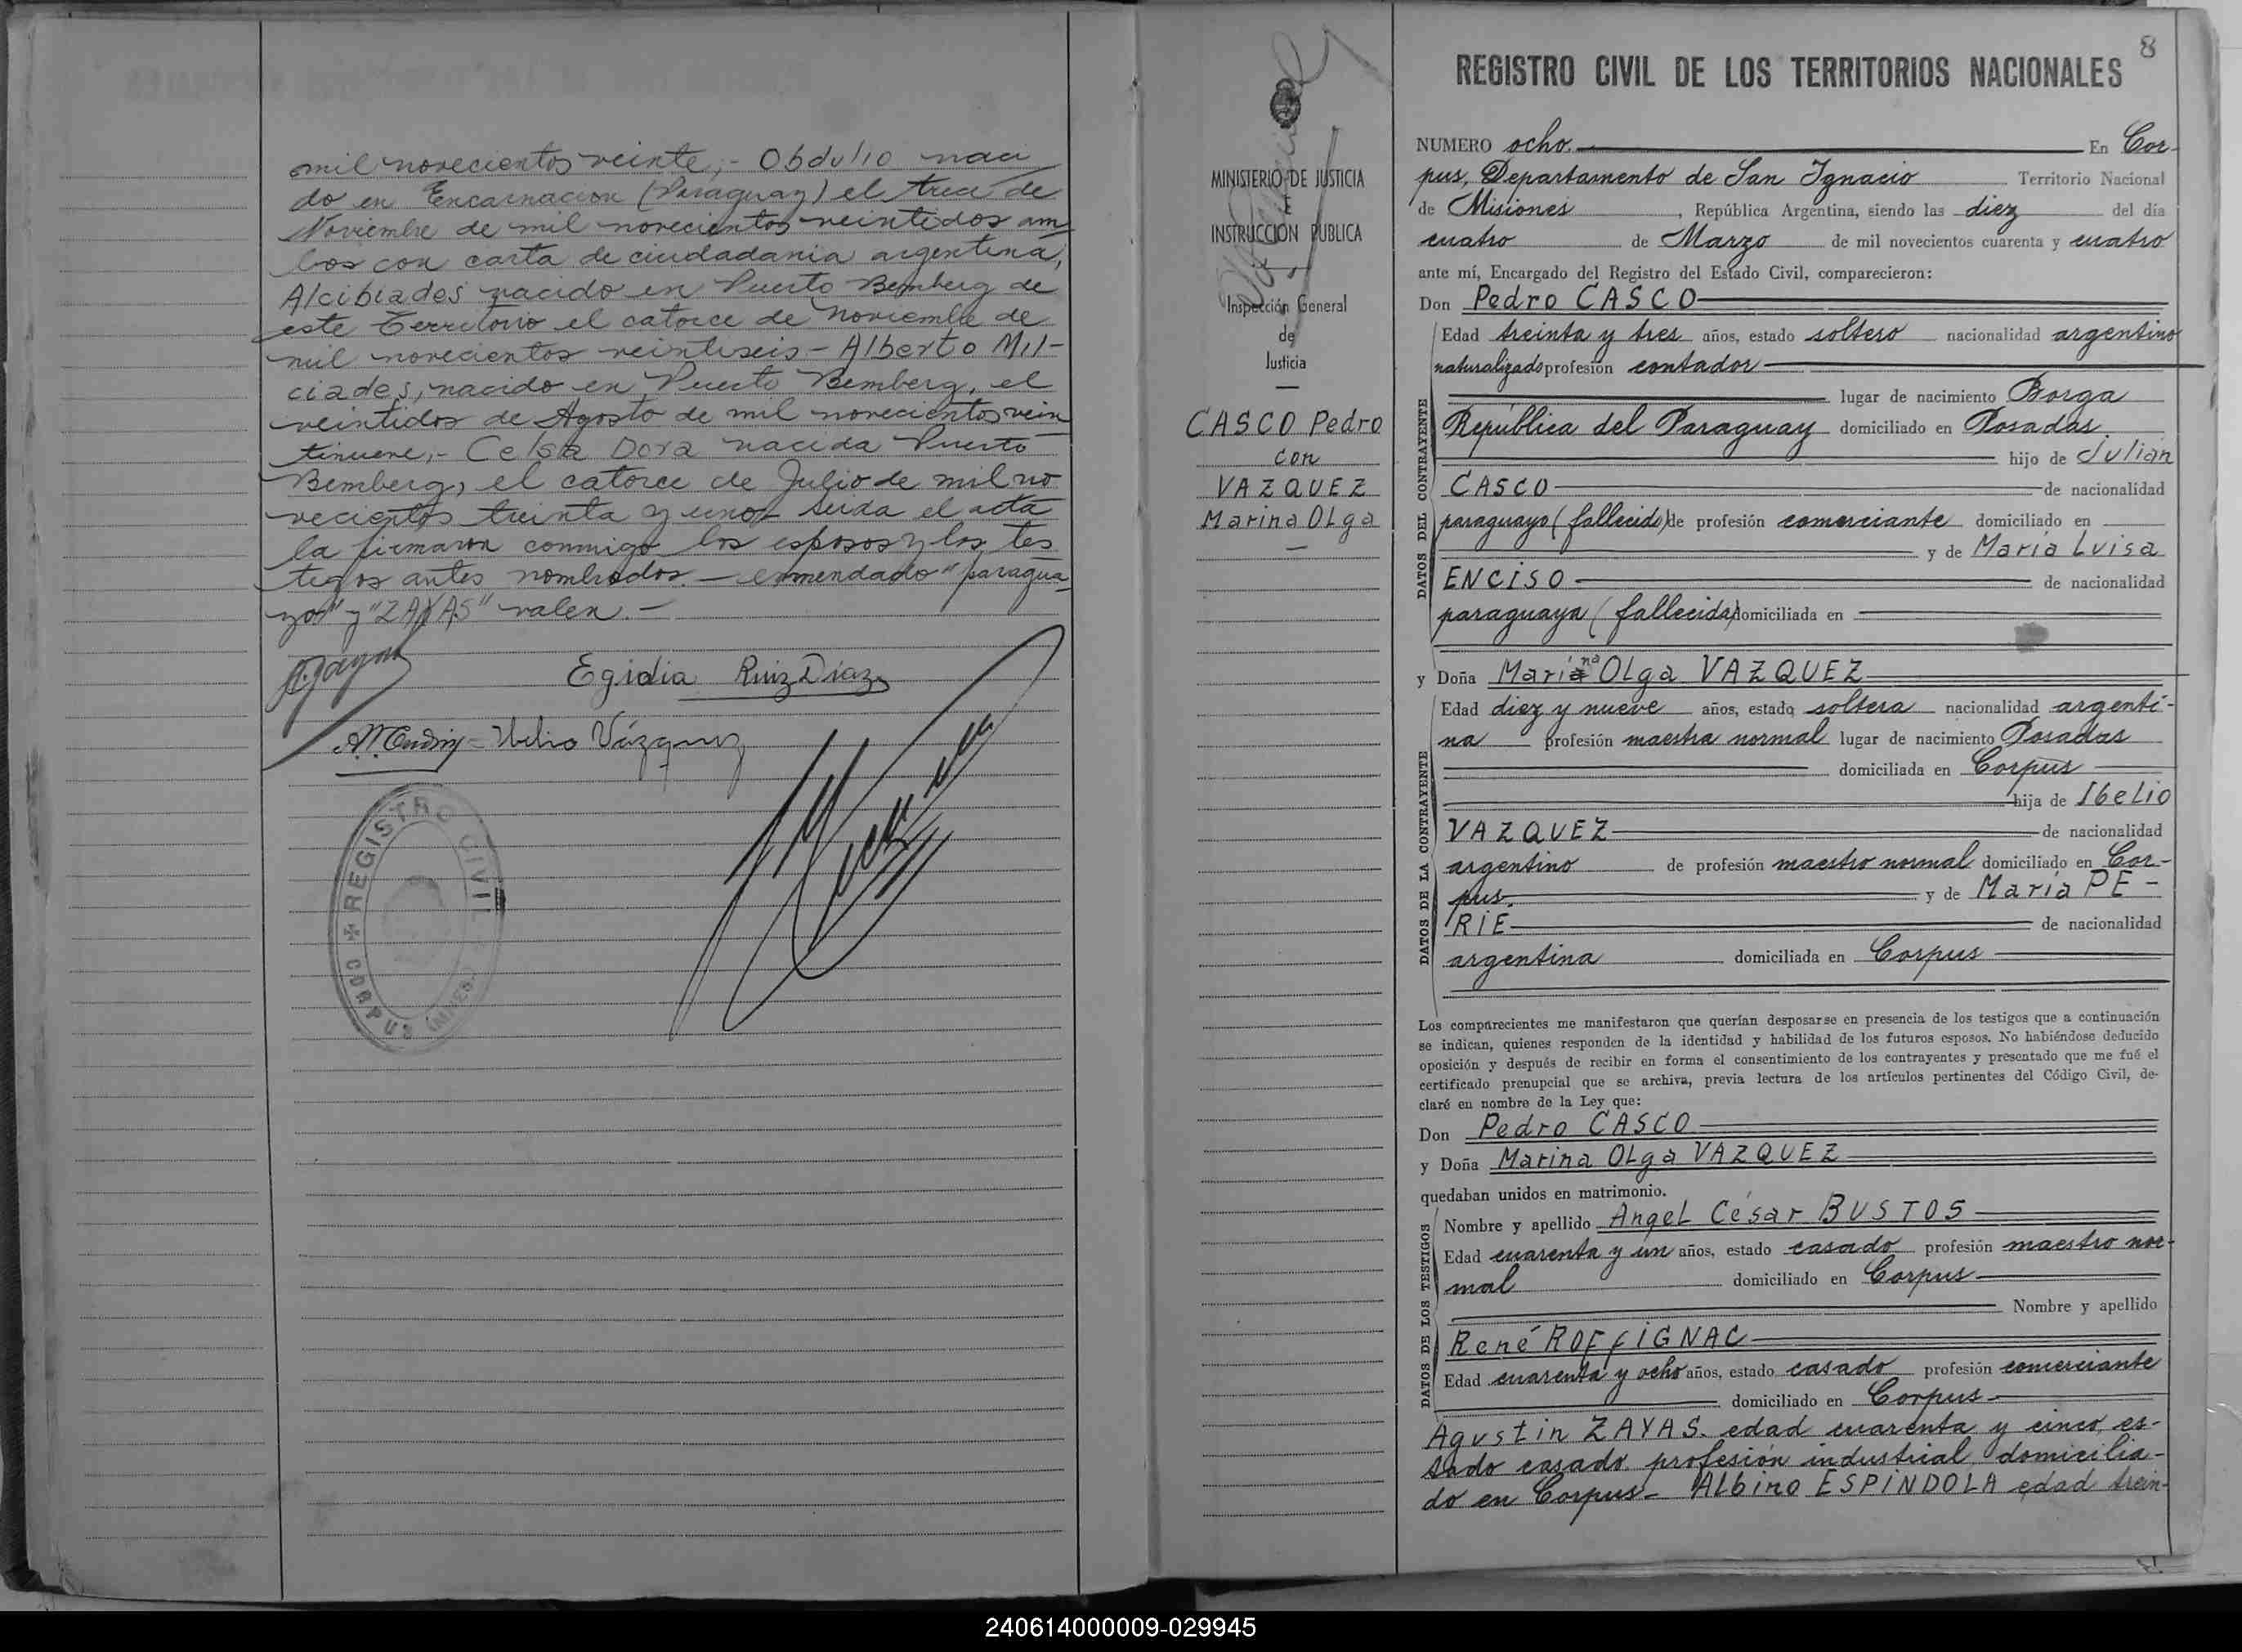 mil novecientos veinte,- Obdulio naci
do en Encarnacion (Paraguay) el trece de
Noviembre de mil novecientos veintidos am
bos con carta de ciudadania argentina,
Alcibiades nacido en Puerto Bemberg de
este Territorio el catorce de Noviembre de
mil novecientos veintiseis - Alberto Mil-
ciades, nacido en Puerto Bemberg, el
veintidos de Agosto de mil novecientos vein
tinueve,- Celsa Dora nacida Puerto
Bemberg, el catorce de Julio de mil no
vecientos treinta y uno. Leida el acta
la firmaron conmigo los esposos y los tes
tigos antes nombrados. - enmendado "paragua
yos" y "ZAYAS" valen. -
Egidia Ruiz Diaz
Ibelio Vázquez
REGISTRO CIVIL
CORPUS (MNES.)
8
REGISTRO CIVIL DE LOS TERRITORIOS NACIONALES
MINISTERIO DE JUSTICIA
E
INSTRUCCIÓN PÚBLICA
Inspección General
de
Justicia
CASCO Pedro
con
VAZQUEZ
Marina Olga
NUMERO ocho. En Cor-
pus, Departamento de San Ignacio Territorio Nacional
de Misiones, República Argentina, siendo las diez del día
cuatro de Marzo de mil novecientos cuarenta y cuatro
ante mí, Encargado del Registro del Estado Civil, comparecieron:
Don Pedro CASCO
DATOS DEL CONTRAYENTE
Edad treinta y tres años, estado soltero nacionalidad argentino
naturalizado profesión contador
lugar de nacimiento Borga
República del Paraguay domiciliado en Posadas
hijo de Julián
CASCO de nacionalidad
paraguayo (fallecido) de profesión comerciante domiciliado en
y de María Luisa
ENCISO de nacionalidad
paraguaya (fallecida) domiciliada en
y Doña Marina Olga VAZQUEZ
DATOS DE LA CONTRAYENTE
Edad diez y nueve años, estado soltera nacionalidad argenti-
na profesión maestra normal lugar de nacimiento Posadas
domiciliada en Corpus
hija de Ibelio
VAZQUEZ de nacionalidad
argentino de profesión maestro normal domiciliado en Cor-
pus. y de María PE-
RIE de nacionalidad
argentina domiciliada en Corpus
Los comparecientes me manifestaron que querían desposarse en presencia de los testigos que a continuación
se indican, quienes responden de la identidad y habilidad de los futuros esposos. No habiéndose deducido
oposición y después de recibir en forma el consentimiento de los contrayentes y presentado que me fué el
certificado prenupcial que se archiva, previa lectura de los artículos pertinentes del Código Civil, de-
claré en nombre de la Ley que:
Don Pedro CASCO
y Doña Marina Olga VAZQUEZ
quedaban unidos en matrimonio.
DATOS DE LOS TESTIGOS
Nombre y apellido Angel César BUSTOS
Edad cuarenta y un años, estado casado profesión maestro nor-
mal domiciliado en Corpus
Nombre y apellido
René ROFFIGNAC
Edad cuarenta y ocho años, estado casado profesión comerciante
domiciliado en Corpus
Agustin ZAYAS. edad cuarenta y cinco, es-
tado casado profesión industrial domicilia-
do en Corpus - Albino ESPINDOLA edad trein-
240614000009-029945